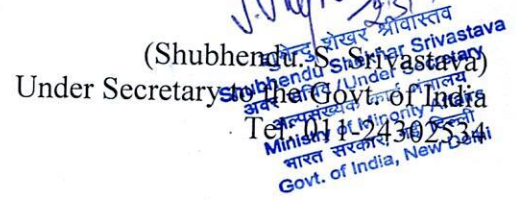 (Shubhendu. S. Srivastava)
Under Secretary to the Govt. of India
Tel: 011-24302534
शुभेन्दु शेखर श्रीवास्तव
Shubhendu Shekhar Srivastava
अवर सचिव /Under Secretary
अल्पसंख्यक कार्य मंत्रालय
Ministry of Minority Affairs
भारत सरकार, नई दिल्ली
Govt. of India, New Delhi